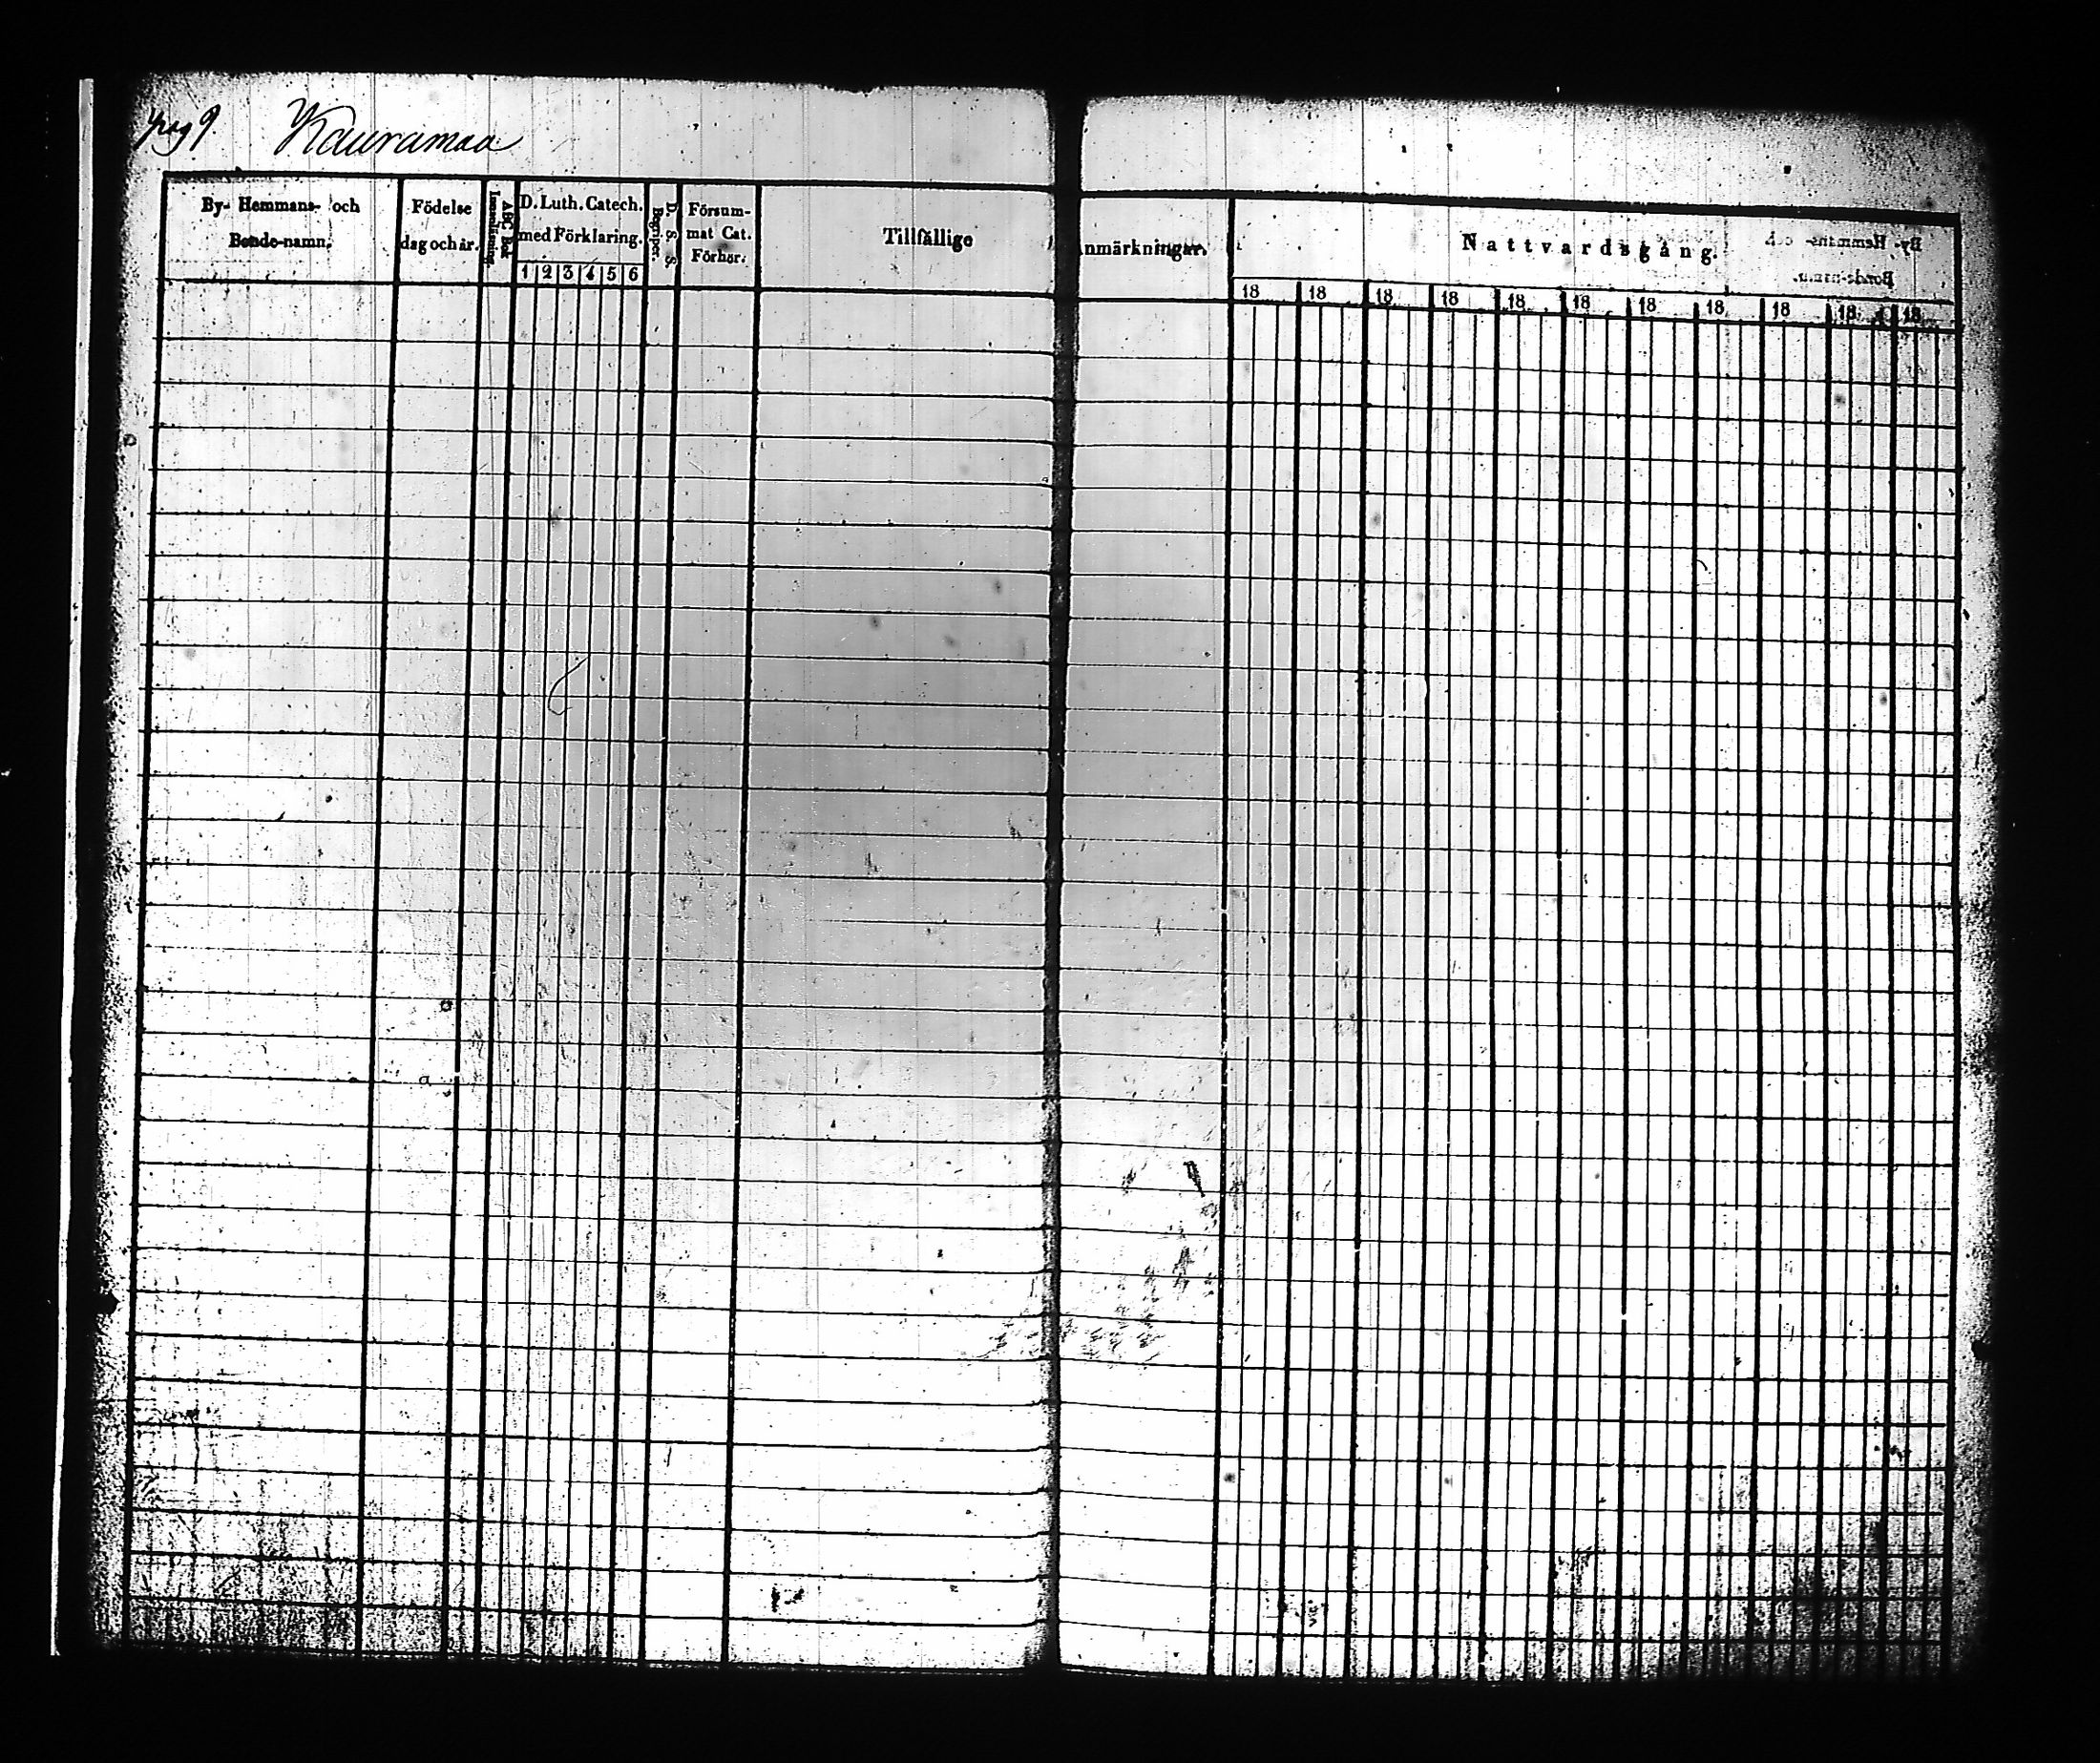 pag 9. Kauramaa
By- Hemmans- och
Bonde-namn.
Födelse
dag och år.
ABC Bok
Innanläsning.
D. Luth. Catech.
med Förklaring.
1 2 3 4 5 6
D. S. S.
Begriper.
Försum-
mat Cat.
Förhör.
Tillfällige
Anmärkningar.
Nattvardsgång.
18 18 18 18 18 18 18 18 18 18 18
By- Hemmans- och
Bonde-namn.